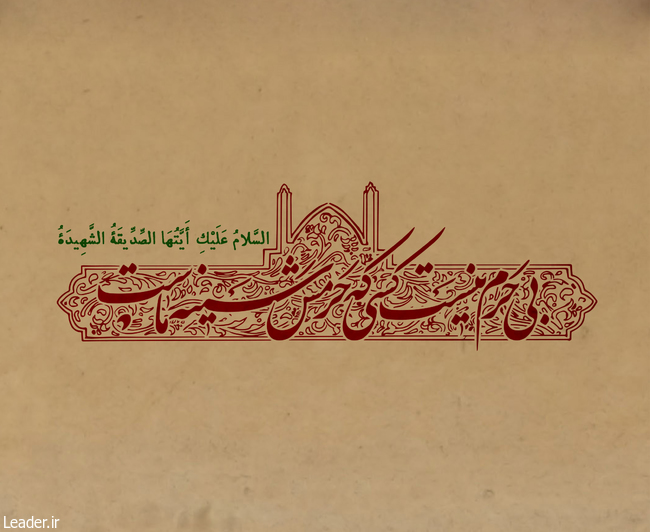 السَّلامُ عَلَيْكِ أَيَّتُهَا الصِّدِّيقَةُ الشَّهِيدَةُ
بی حرم نیست کسی که حرمش سینه ماست
Leader.ir